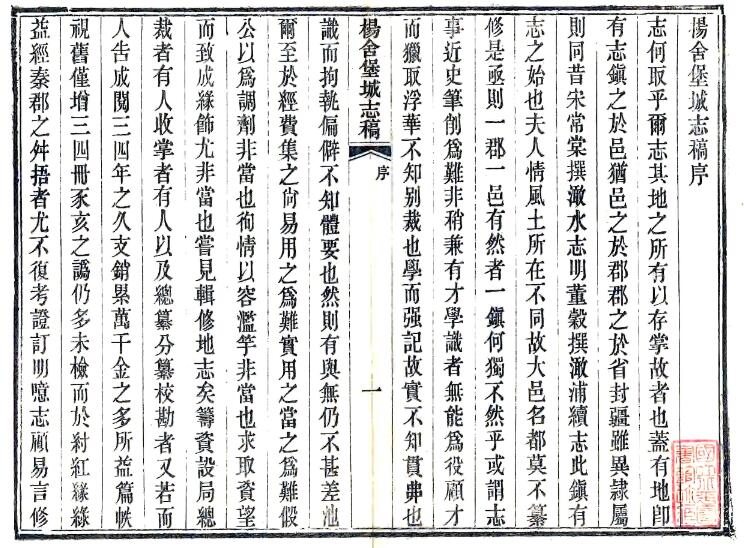 楊舍堡城志稿序
志何取乎爾志其地之所有以存掌故者也蓋有地卽
有志鎭之於邑猶邑之於郡郡之於省封疆雖異隸屬
則同昔宋常棠撰澉水志明董穀撰澉浦續志此鎭有
志之始也夫人情風土所在不同故大邑名都莫不纂
修是亟則一郡一邑有然者一鎭何獨不然乎或謂志
事近史筆削爲難非稍兼有才學識者無能爲役顧才
而獵取浮華不知别裁也學而强記故實不知貫弗也
楊舍堡城志稿
序
一
識而拘執偏僻不知體要也然則有與無仍不甚差池
爾至於經費集之尙易用之爲難實用之當之爲難假
公以爲調劑非當也徇情以容濫竽非當也求取資望
而致成緣飾尤非當也嘗見輯修地志矣籌資設局總
裁者有人收掌者有人以及總纂分纂校勘者又若而
人吿成閱三四年之久支銷累萬千金之多所益篇帙
視舊僅增三四冊豕亥之譌仍多未檢而於紂紅緣綠
益經秦郡之舛捂者尤不復考證訂明噫志顧易言修